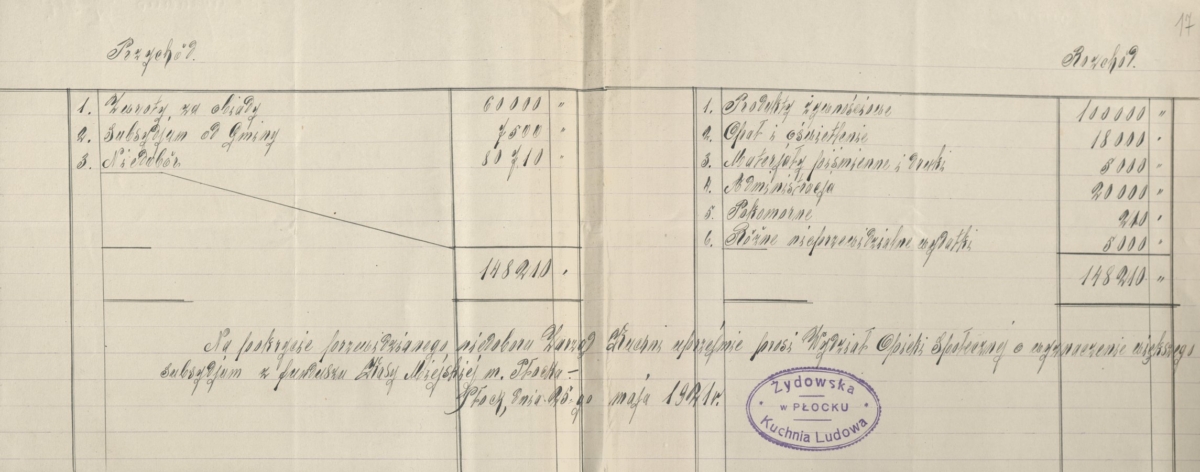 17
Przychód.
1. Zwroty za obiady 60000 "
2. Subsydjum od Gminy 7500 "
3. Niedobór 80710 "
148210 "
Rozchód.
1. Produkty żywnościowe 100000 "
2. Opał i oświetlenie 18000 "
3. Materjały piśmienne i druki 5000 "
4. Administracja 20000 "
5. Pokomorne 210 "
6. Różne nieprzewidzialne wydatki 5000 "
148210 "
Na pokrycie przewidzianego niedoboru Zarząd Kuchni uprzejmie prosi Wydział Opieki Społecznej o wyznaczenie większego
subsydjum z funduszu Kasy Miejskiej m. Płocka –
Płock, dnia 25-go maja 1921 r.
Żydowska
w PŁOCKU
Kuchnia Ludowa